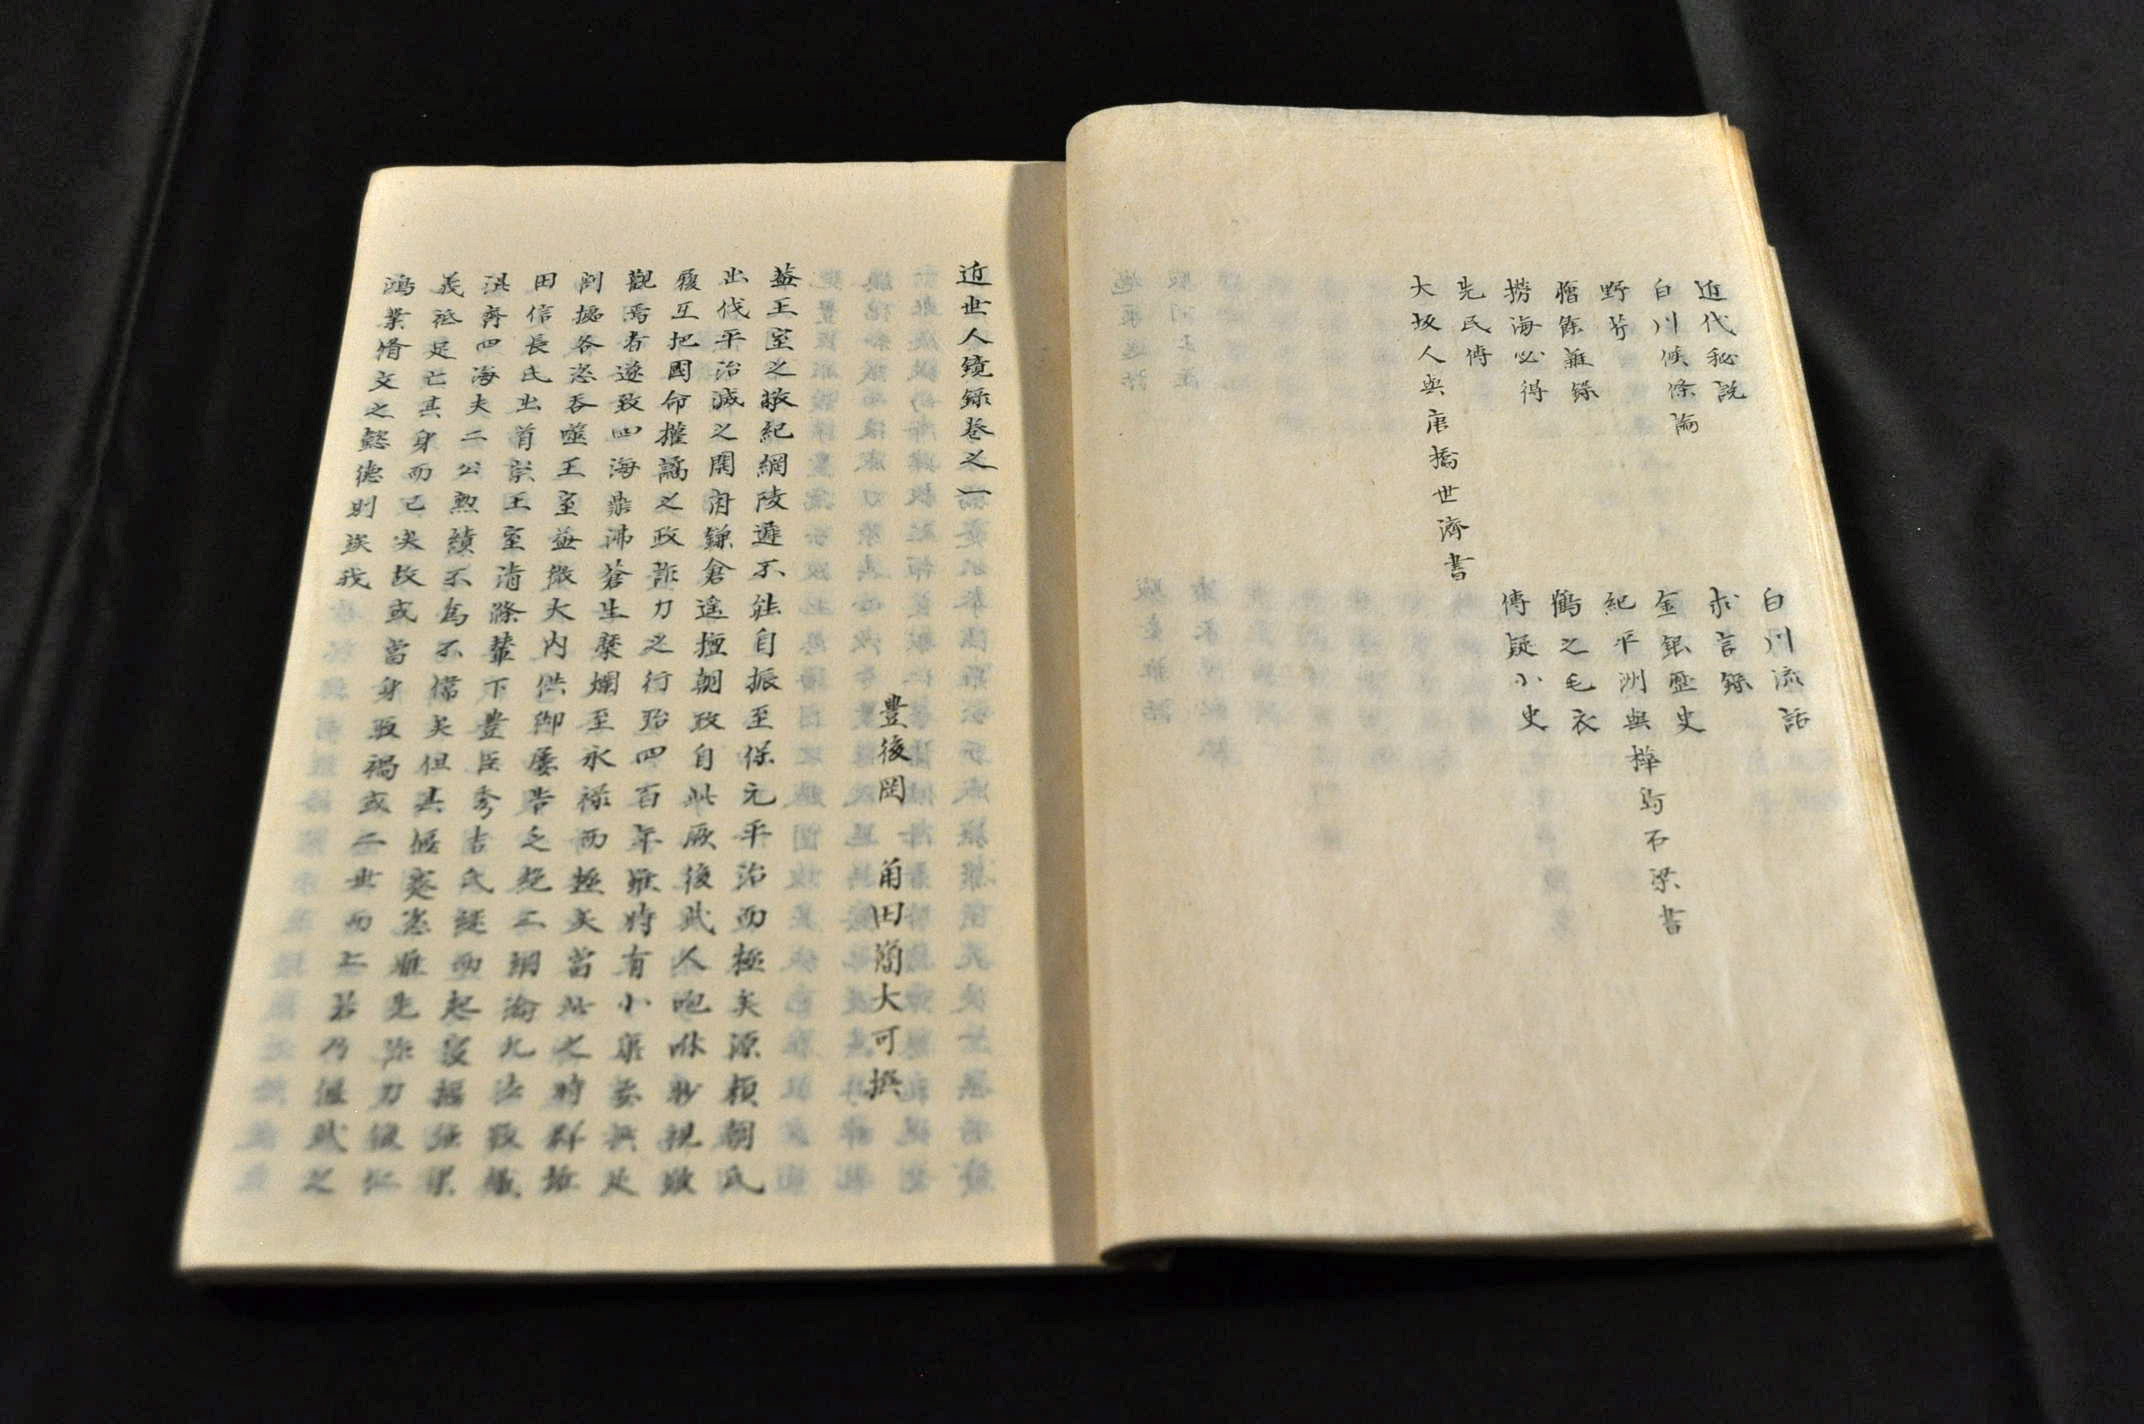 近代秘説　白川流話
白川候條論　求言錄
野芥　金銀歴史
膾餘雜錄　紀平洲與樺島石梁書
撈海必得　鶴之毛衣
先民傳　傳疑小史
大坂人與唐橋世濟書
近世人鏡録巻之一
豊後岡　角田簡大可撰
蓋王室之敝紀綱陵遲不能自振至保元平治而極矣源頼朝氏
出伐平治滅之開府鎌倉遥擅朝政自此厥後武人咆哮眇視跛
履互把國命權譎之政詐力之行殆四百年雖時有小康要無足
觀焉者遂致四海鼎沸蒼生糜爛至永禄而極矣當此之時群雄
割據各恣呑噬王室益微大内供御屡告乏絶三綱淪九法斁織
田信長氏出首崇王室清滌輦下豊臣秀吉氏継而起強梁
洪齊四海夫二公勲績不為不偉矣但其偃蹇恣雎先詐力後仁
義祗足亡其身而已矣故或當身取禍或二世而亡若乃偃武之
鴻業脩文之懿德則我